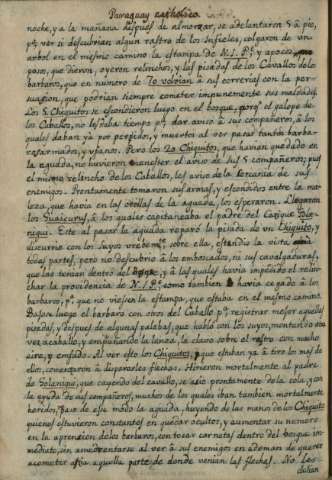 Paraguay catholico.
noche, y a la mañana despues de almorzar, se adelantaron 5 à pie,
pª. ver si descubrian algun rastro de los Infieles, colgaron de un
arbol en el mesmo camino la estampa de N. S. Pᵉ. y apocos
pasos, que dieron, oyeron relinchos, y las pisadas de los Cavallos de los
barbaros, que en numero de 70 volvian à sus correrias con la per-
suasion, que podrian siempre cometer impunemente sus maldades.
Los 5 Chiquitos se escondieron luego en el bosque, porqᵉ. el galope de
los Caballos, no les daba tiempo pª. dar aviso à sus compañeros, à los
quales daban ya por perdidos, y muertos al ver tanto barba-
ro armado, y ufano. Pero los 20 Chiquitos, que havian quedado en
la aguada, no huvieron menester el aviso de sus 5 compañeros; pues
el mismo relincho de los Caballos, les aviso de la cercania de sus
enemigos. Prontamente tomaron sus armas, y escondidos entre la ma-
leza, que havia en las orillas de la aguada, los esperaron. Llegaron
los Guaicurus, à los quales capitaneaba el padre del Cazique
Este al pasar la aguada reparó la pisada de un Chiquito, y
discurrio con los suyos sobre ella, estendio la vista
todas partes, pero no descubrio à los emboscados, ni sus cavalgaduras,
que las tenian dentro del y à las quales havia impedido el relin-
char la providencia de N. S. Pᵉ. como tambien havia cegado à los
barbaros, pª. que no viesen la estampa, que estaba en el mesmo camino.
Bajose luego el barbaro con otros del Caballo pª. registrar mejor aquellas
pisadas, y despues de algunas palabas, que habló con los suyos, montando otra
vez a caballo, y empuñando la lanza, la clavó sobre el rastro con mucho
aire, y enfado. Al ver esto los Chiquitos, que estaban ya à tiro los mas de
ellos, comenzaron à dispararles flechas. Hirieron mortalmente al padre
de que cayendo del caballo, se asio prontamente de la cola, y con
la ayuda de sus compañeros, muchos de los quales iban tambien mortalmente
heridos, paso de ese modo la aguada, huyendo de las manos de los Chiquitos
quienes estuvieron constantes en quedar ocultos, y aumentar su numero
en la aprension de los barbaros, con tocar cornetas dentro del bosque in-
mediato, sin amedrentarse al ver à sus enemigos en ademan de querer
acometer aquella parte de donde venian las flechas. No les
daban